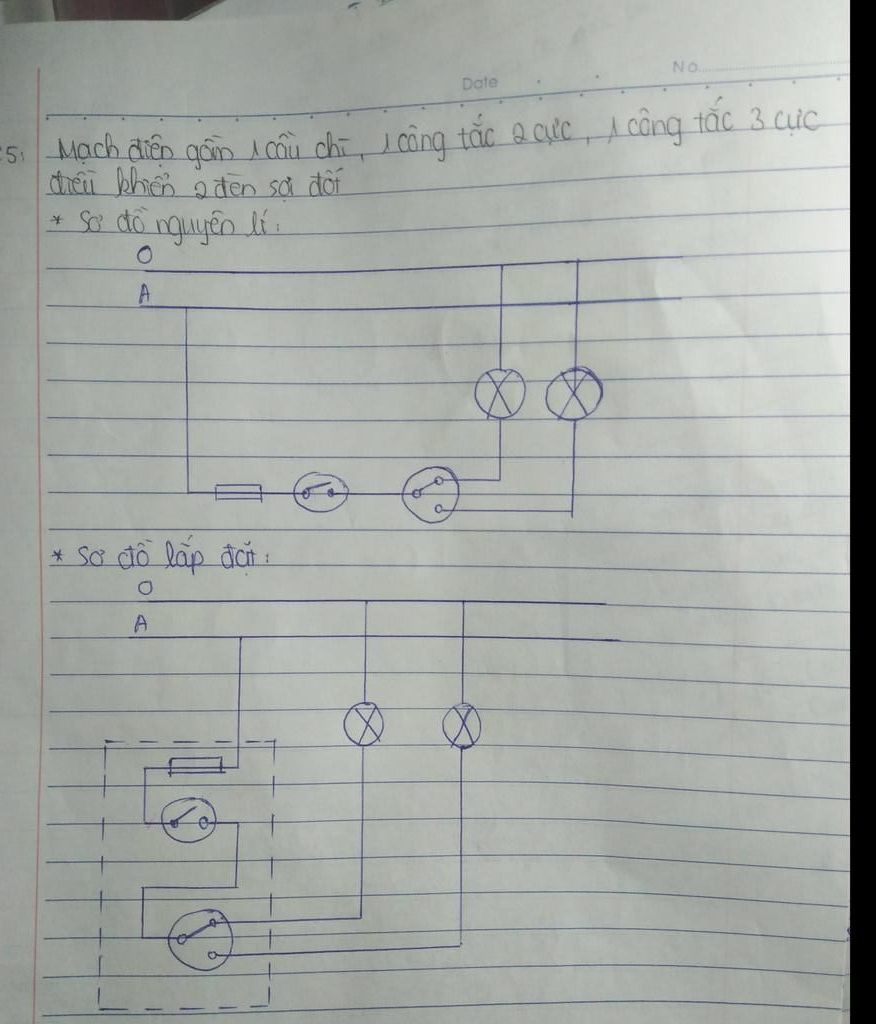 No.
Date
5: Mạch điện gồm 1 cầu chì, 1 công tắc 2 cực, 1 công tắc 3 cực
điều khiển 2 đèn sợi đốt
* Sơ đồ nguyên lí:
O
A
* Sơ đồ lắp đặt:
O
A